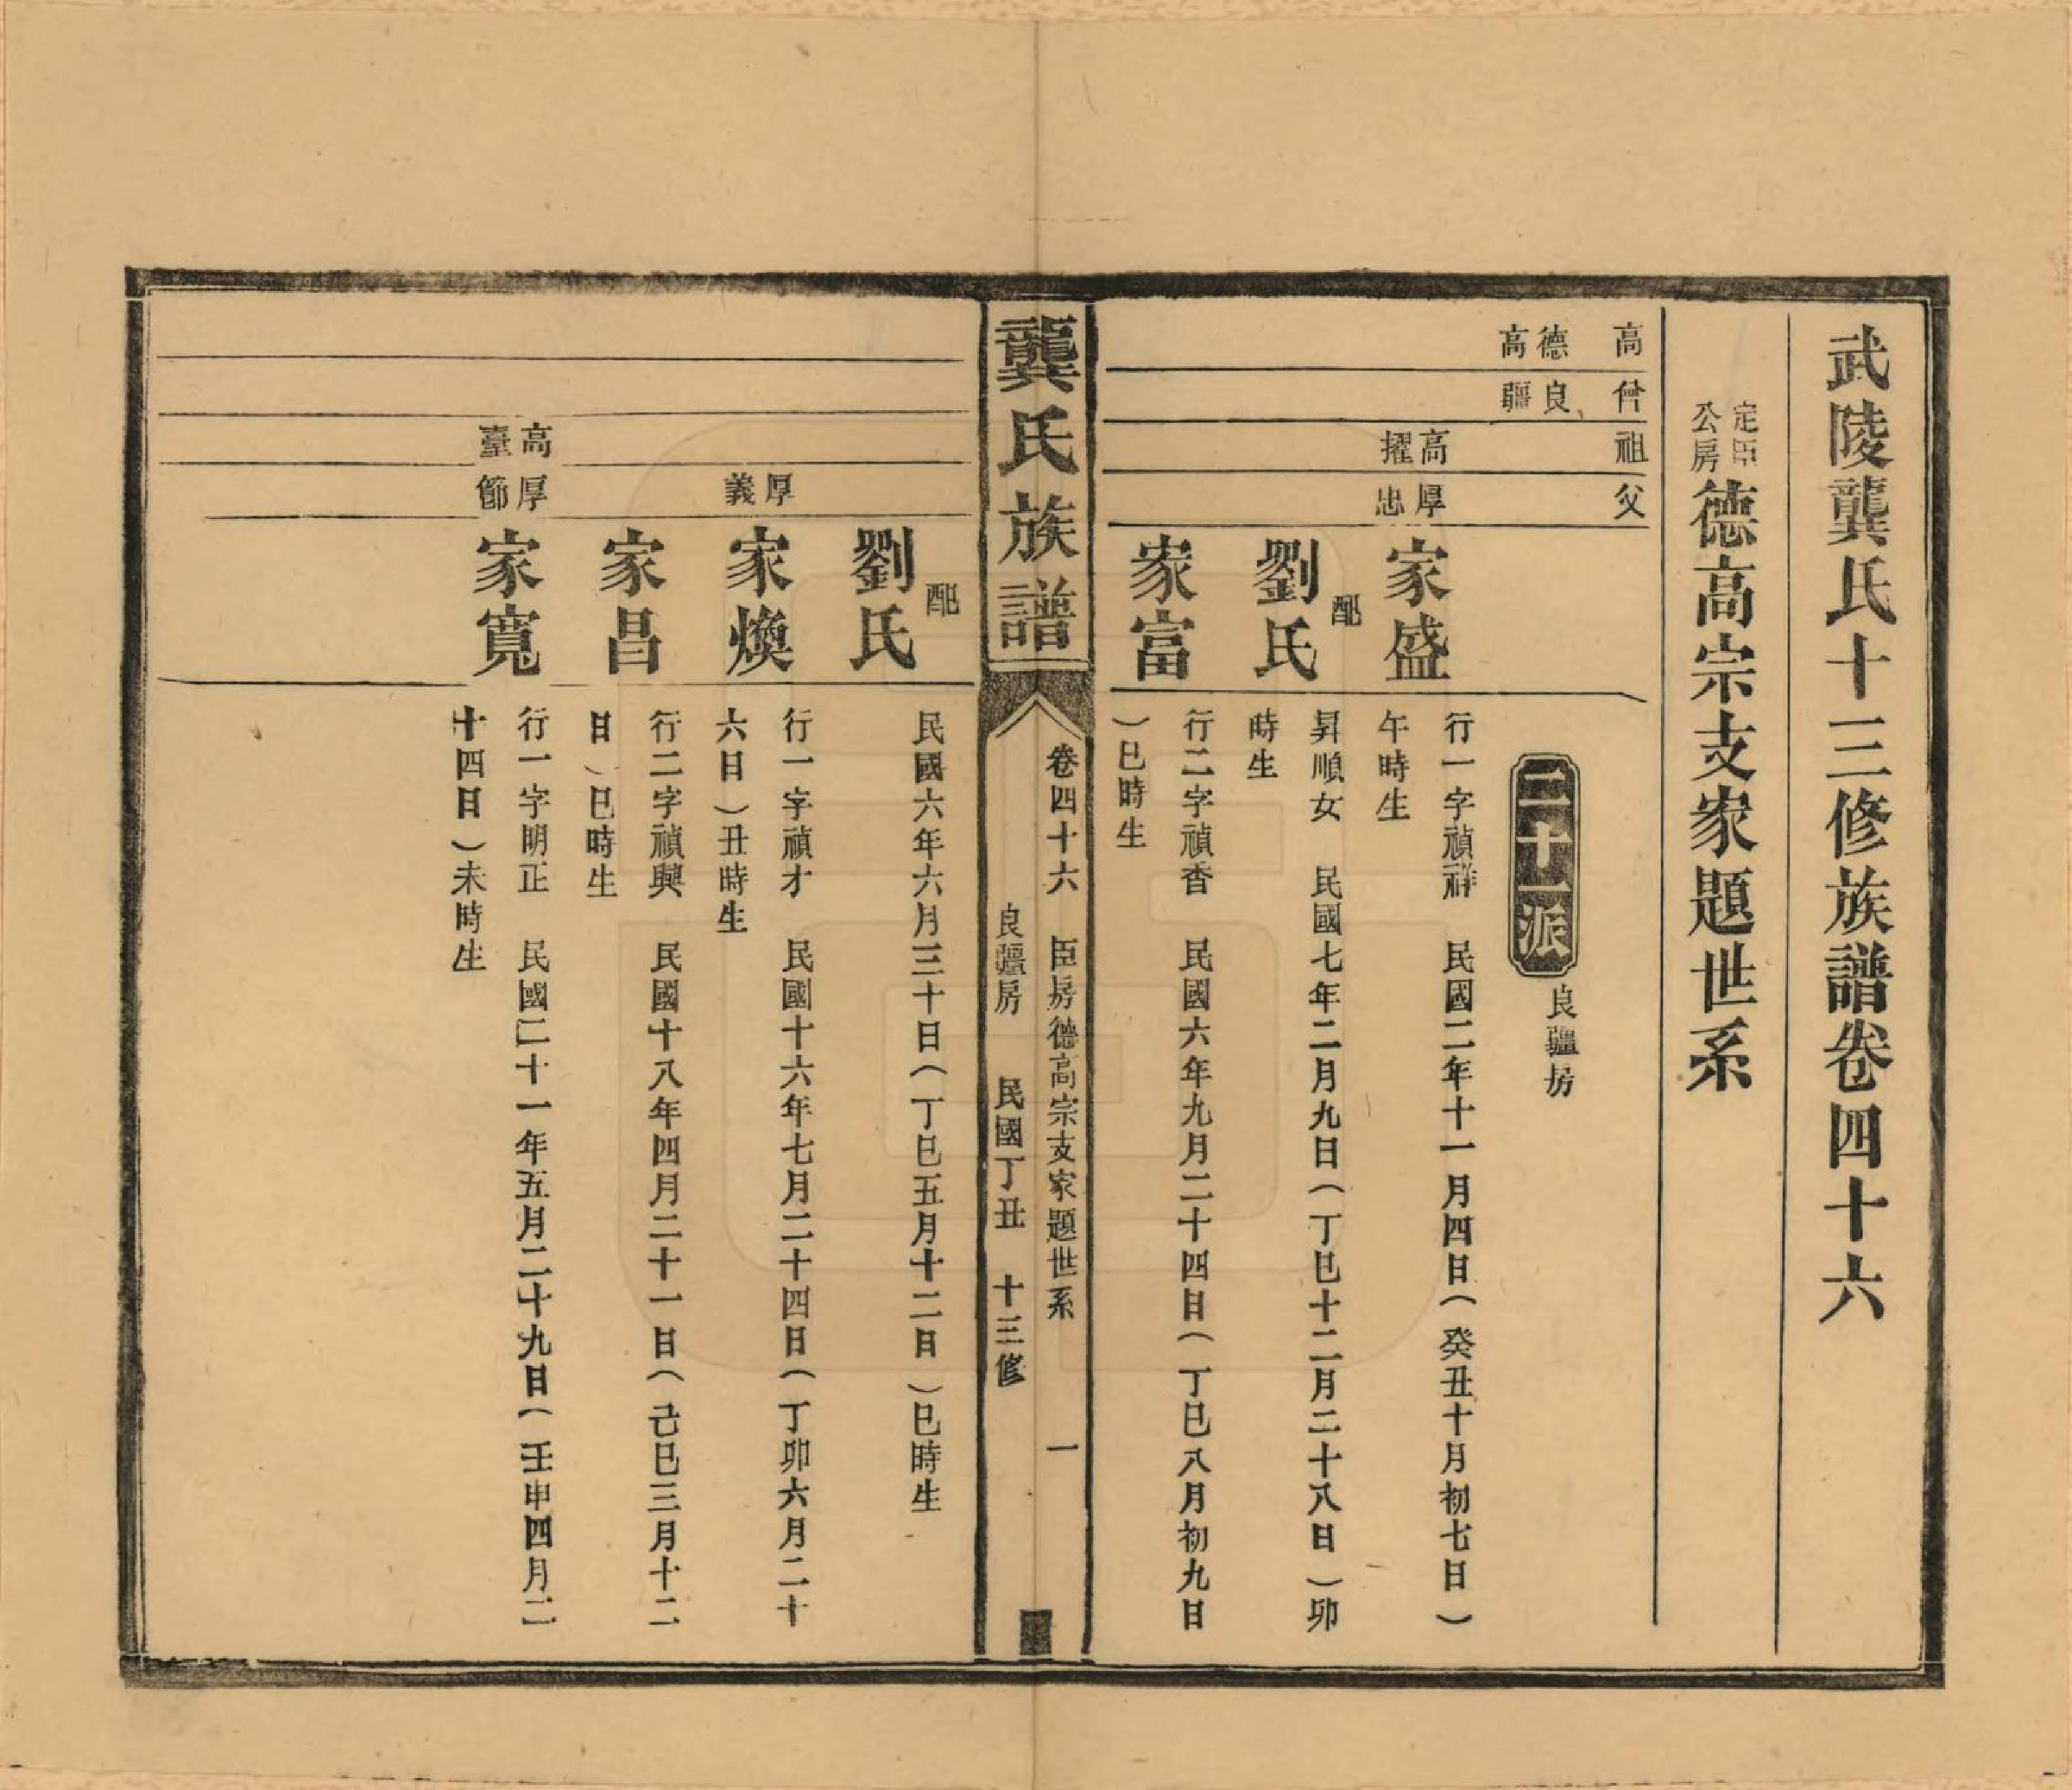 武陵龔氏十三修族譜卷四十六
定臣
公房
德高宗支家題世系
高
曾
祖
父
德高
良疆
二十一派
良疆房
高擢
厚忠
家盛
行一字禎祥　民國二年十一月四日（癸丑十月初七日）
午時生
配
劉氏
昇順女　民國七年二月九日（丁巳十二月二十八日）卯
時生
家富
行二字禎香　民國六年九月二十四日（丁巳八月初九日
）巳時生
龔氏族譜
卷四十六　臣房德高宗支家題世系　一
良疆房　民國丁丑　十三修
配
劉氏
民國六年六月三十日（丁巳五月十二日）巳時生
厚義
家煥
行一字禎才　民國十六年七月二十四日（丁卯六月二十
六日）丑時生
家昌
行二字禎興　民國十八年四月二十一日（己巳三月十二
日）巳時生
高臺
厚節
家寬
行一字明正　民國二十一年五月二十九日（壬申四月二
十四日）未時生